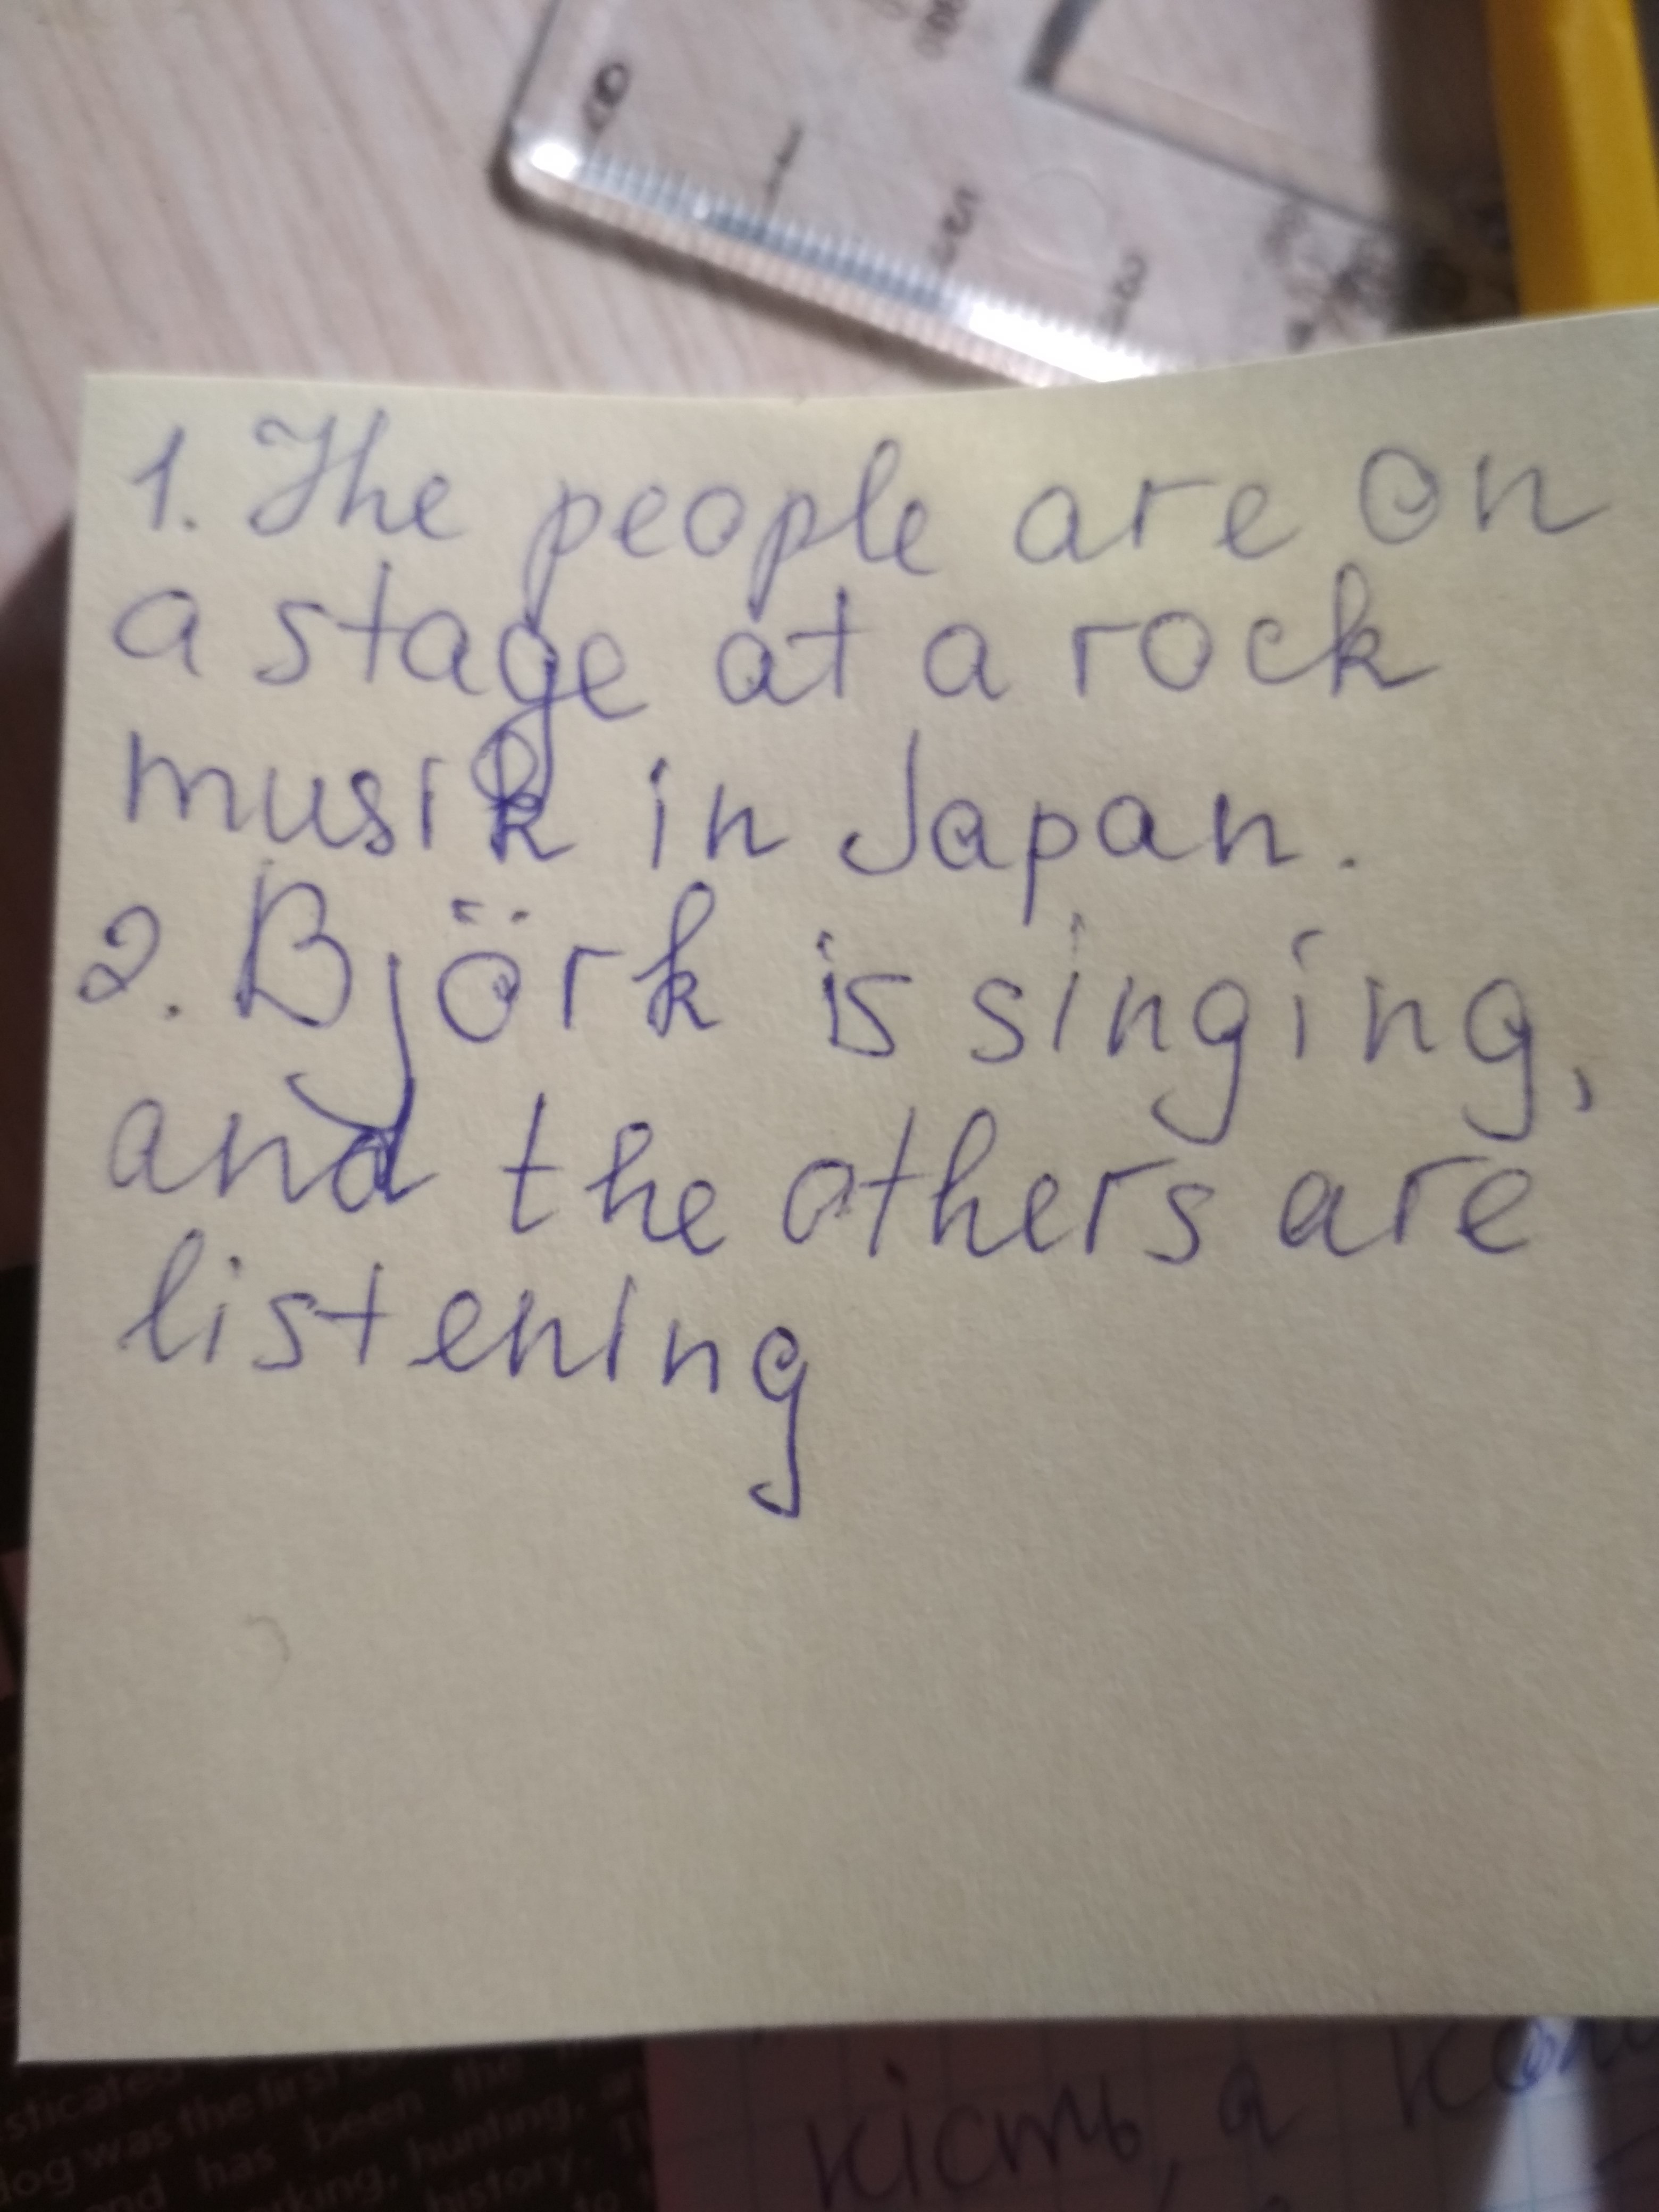 1. The people are on
a stage at a rock
musik in Japan.
2. Björk is singing,
and the others are
listening
dog was the first
has been the
working, hunting,
history.
кість, а